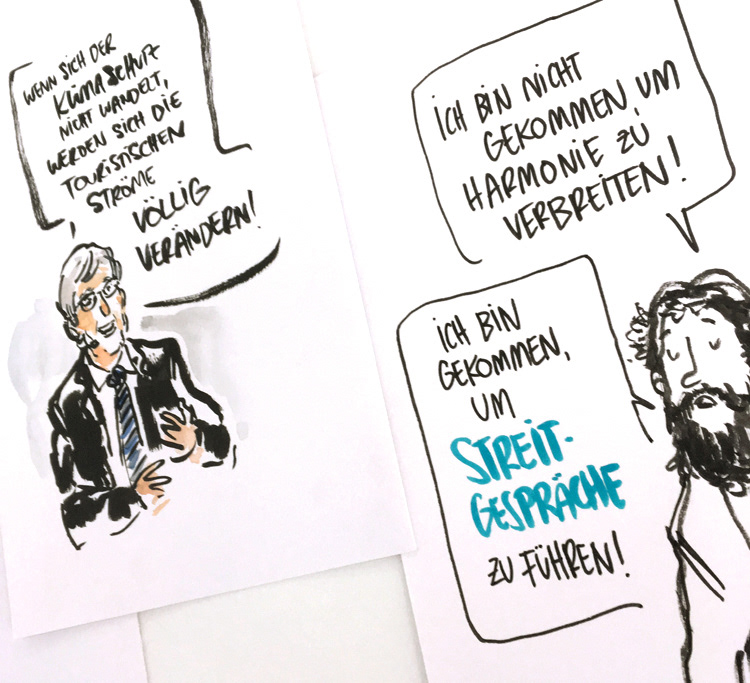 WENN SICH DER
KLIMASCHUTZ
NICHT WANDELT,
WERDEN SICH DIE
TOURISTISCHEN
STRÖME
VÖLLIG
VERÄNDERN!
ICH BIN NICHT
GEKOMMEN, UM
HARMONIE ZU
VERBREITEN!
ICH BIN
GEKOMMEN,
UM
STREIT-
GESPRÄCHE
ZU FÜHREN!